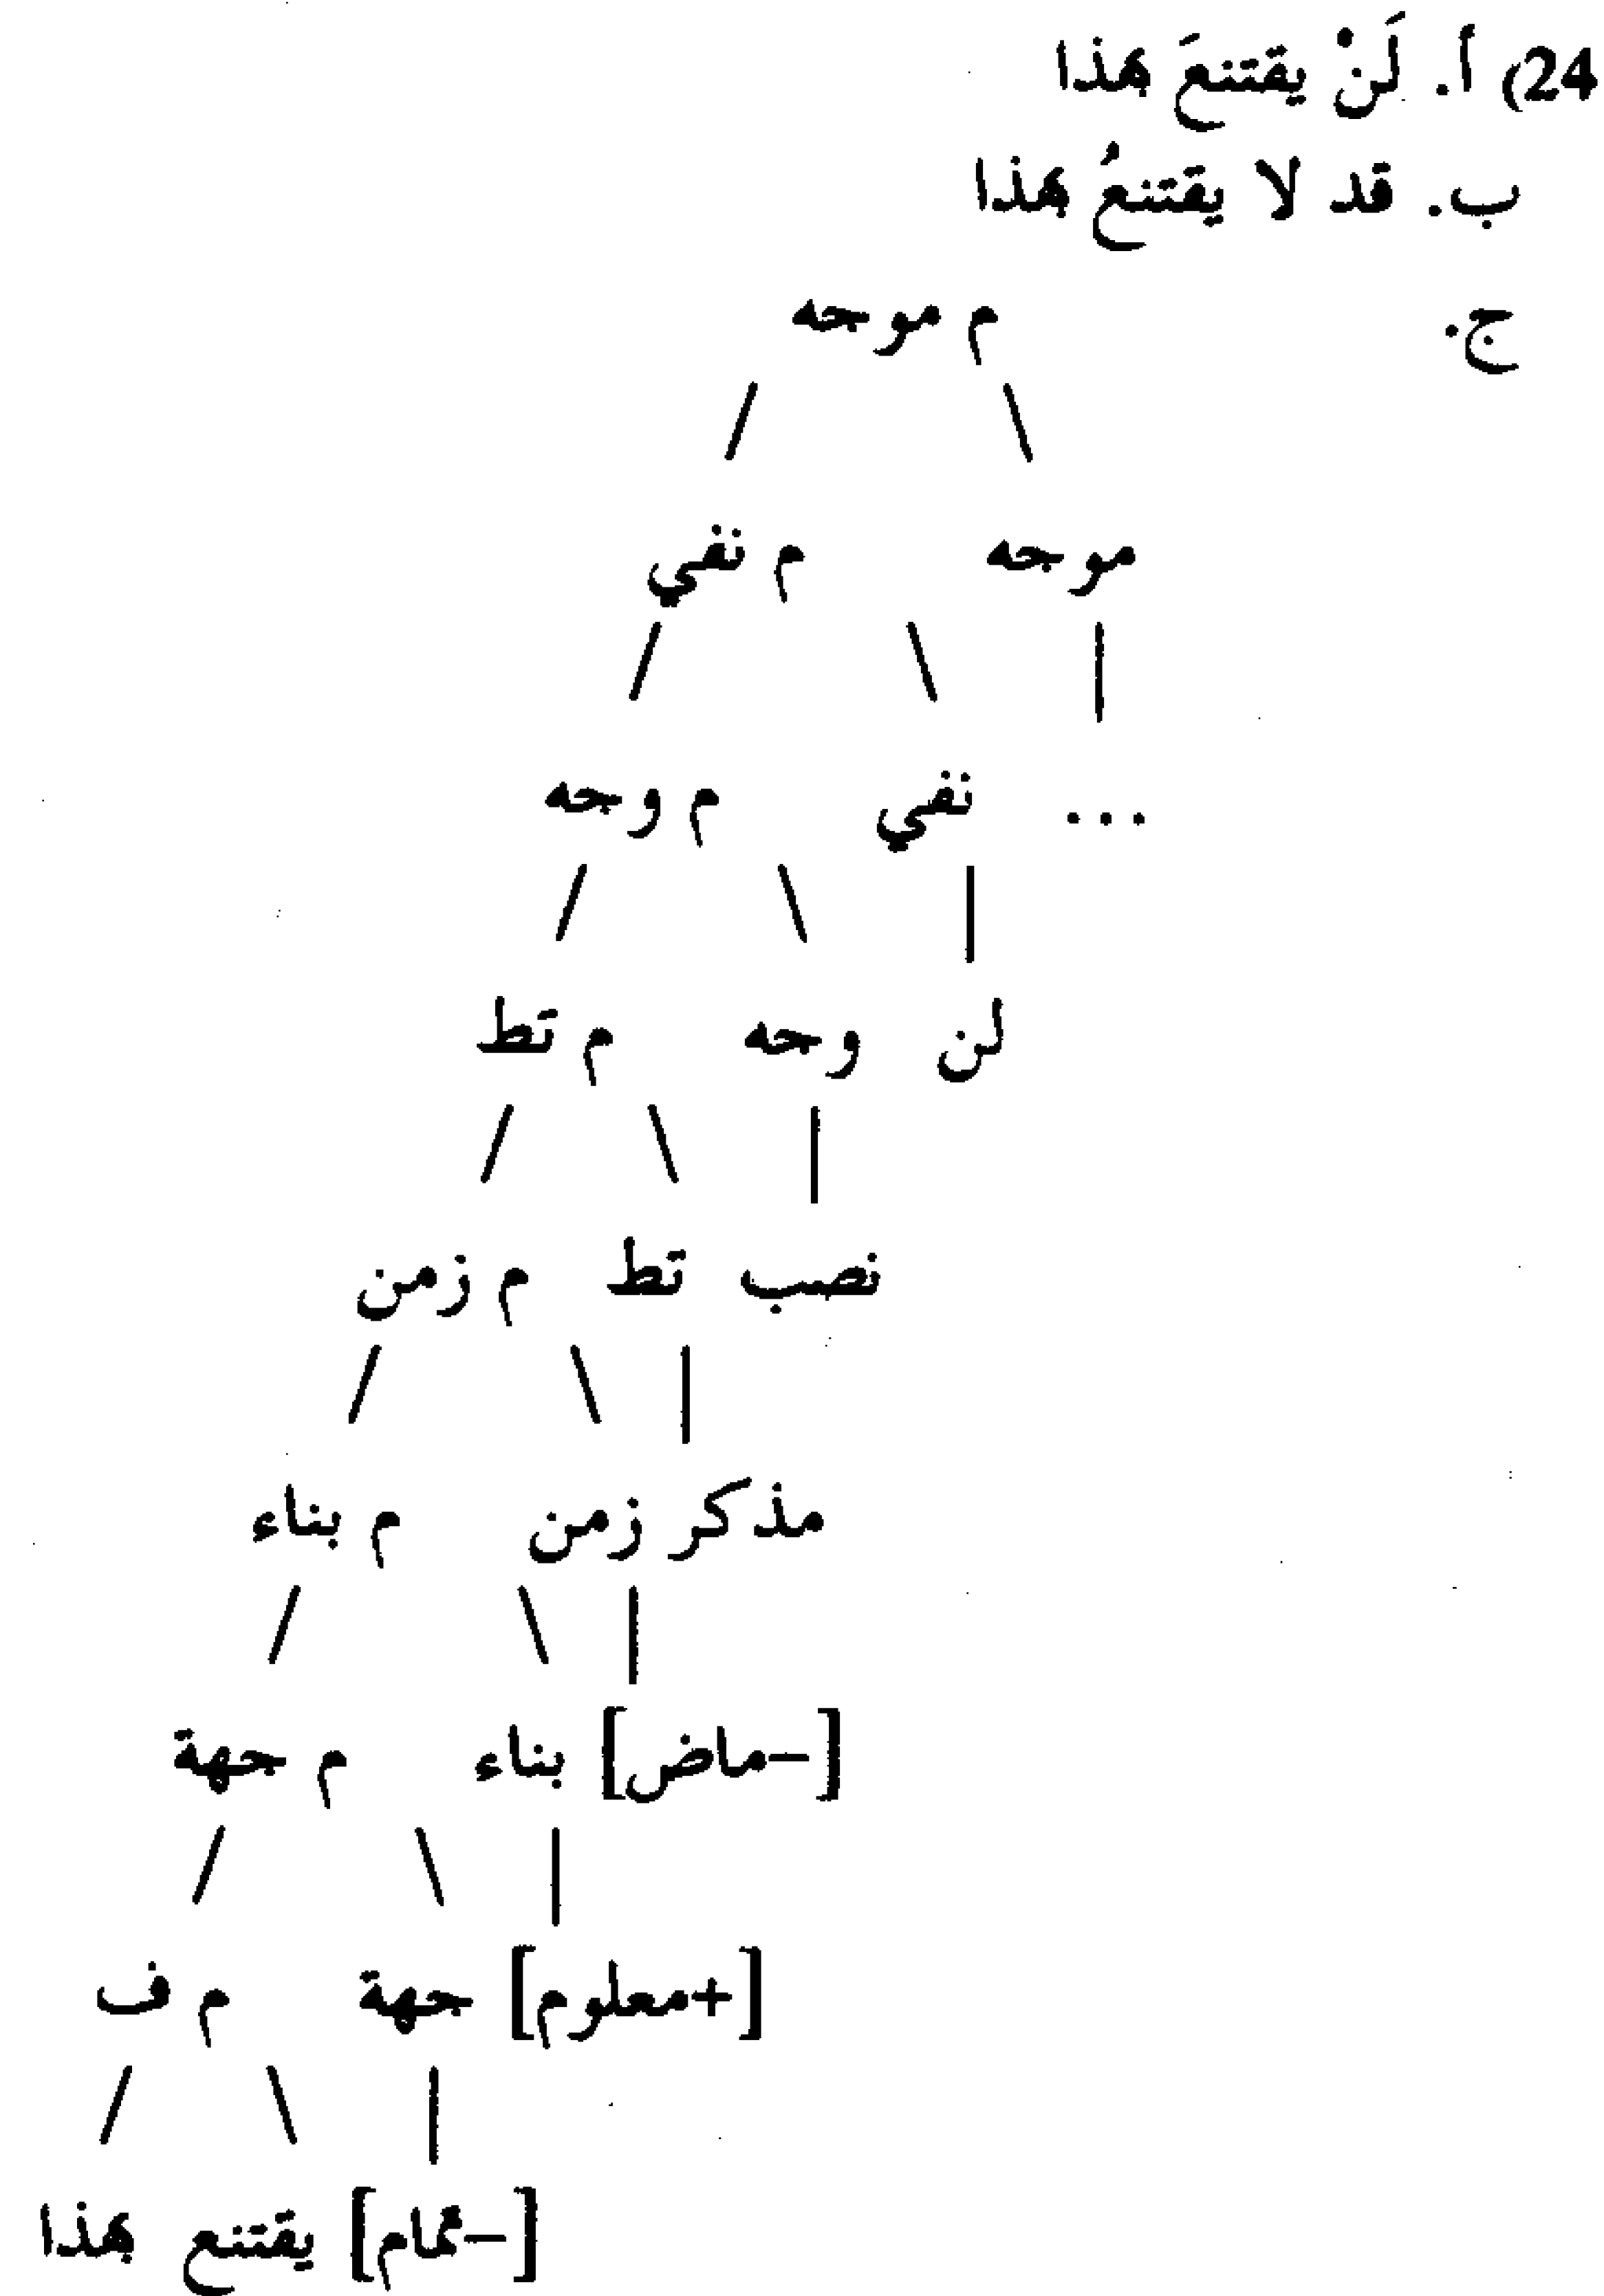 24) أ. لَنْ يقتنعَ بهذا
ب. قد لا يقتنعُ بهذا
ج.
م موجه
موجه م نفي
... نفي م وجه
لن وجه م تط
نصب تط م زمن
مذكر زمن م بناء
[-ماض] بناء م جهة
[+معلوم] جهة م ف
[-تمام] يقتنع بهذا